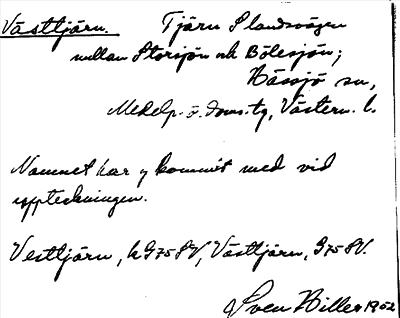 Västtjärn. Tjärn S landsvägen
mellan Storsjön och Bölesjön;
Hässjö sn,
Medelp. ö. doms.tg, Västern. l.
Namnet har ej kommit med vid
uppteckningen.
Vesttjärn, k G75SV, Västtjärn, G75SV.
Sven Hiller 1952